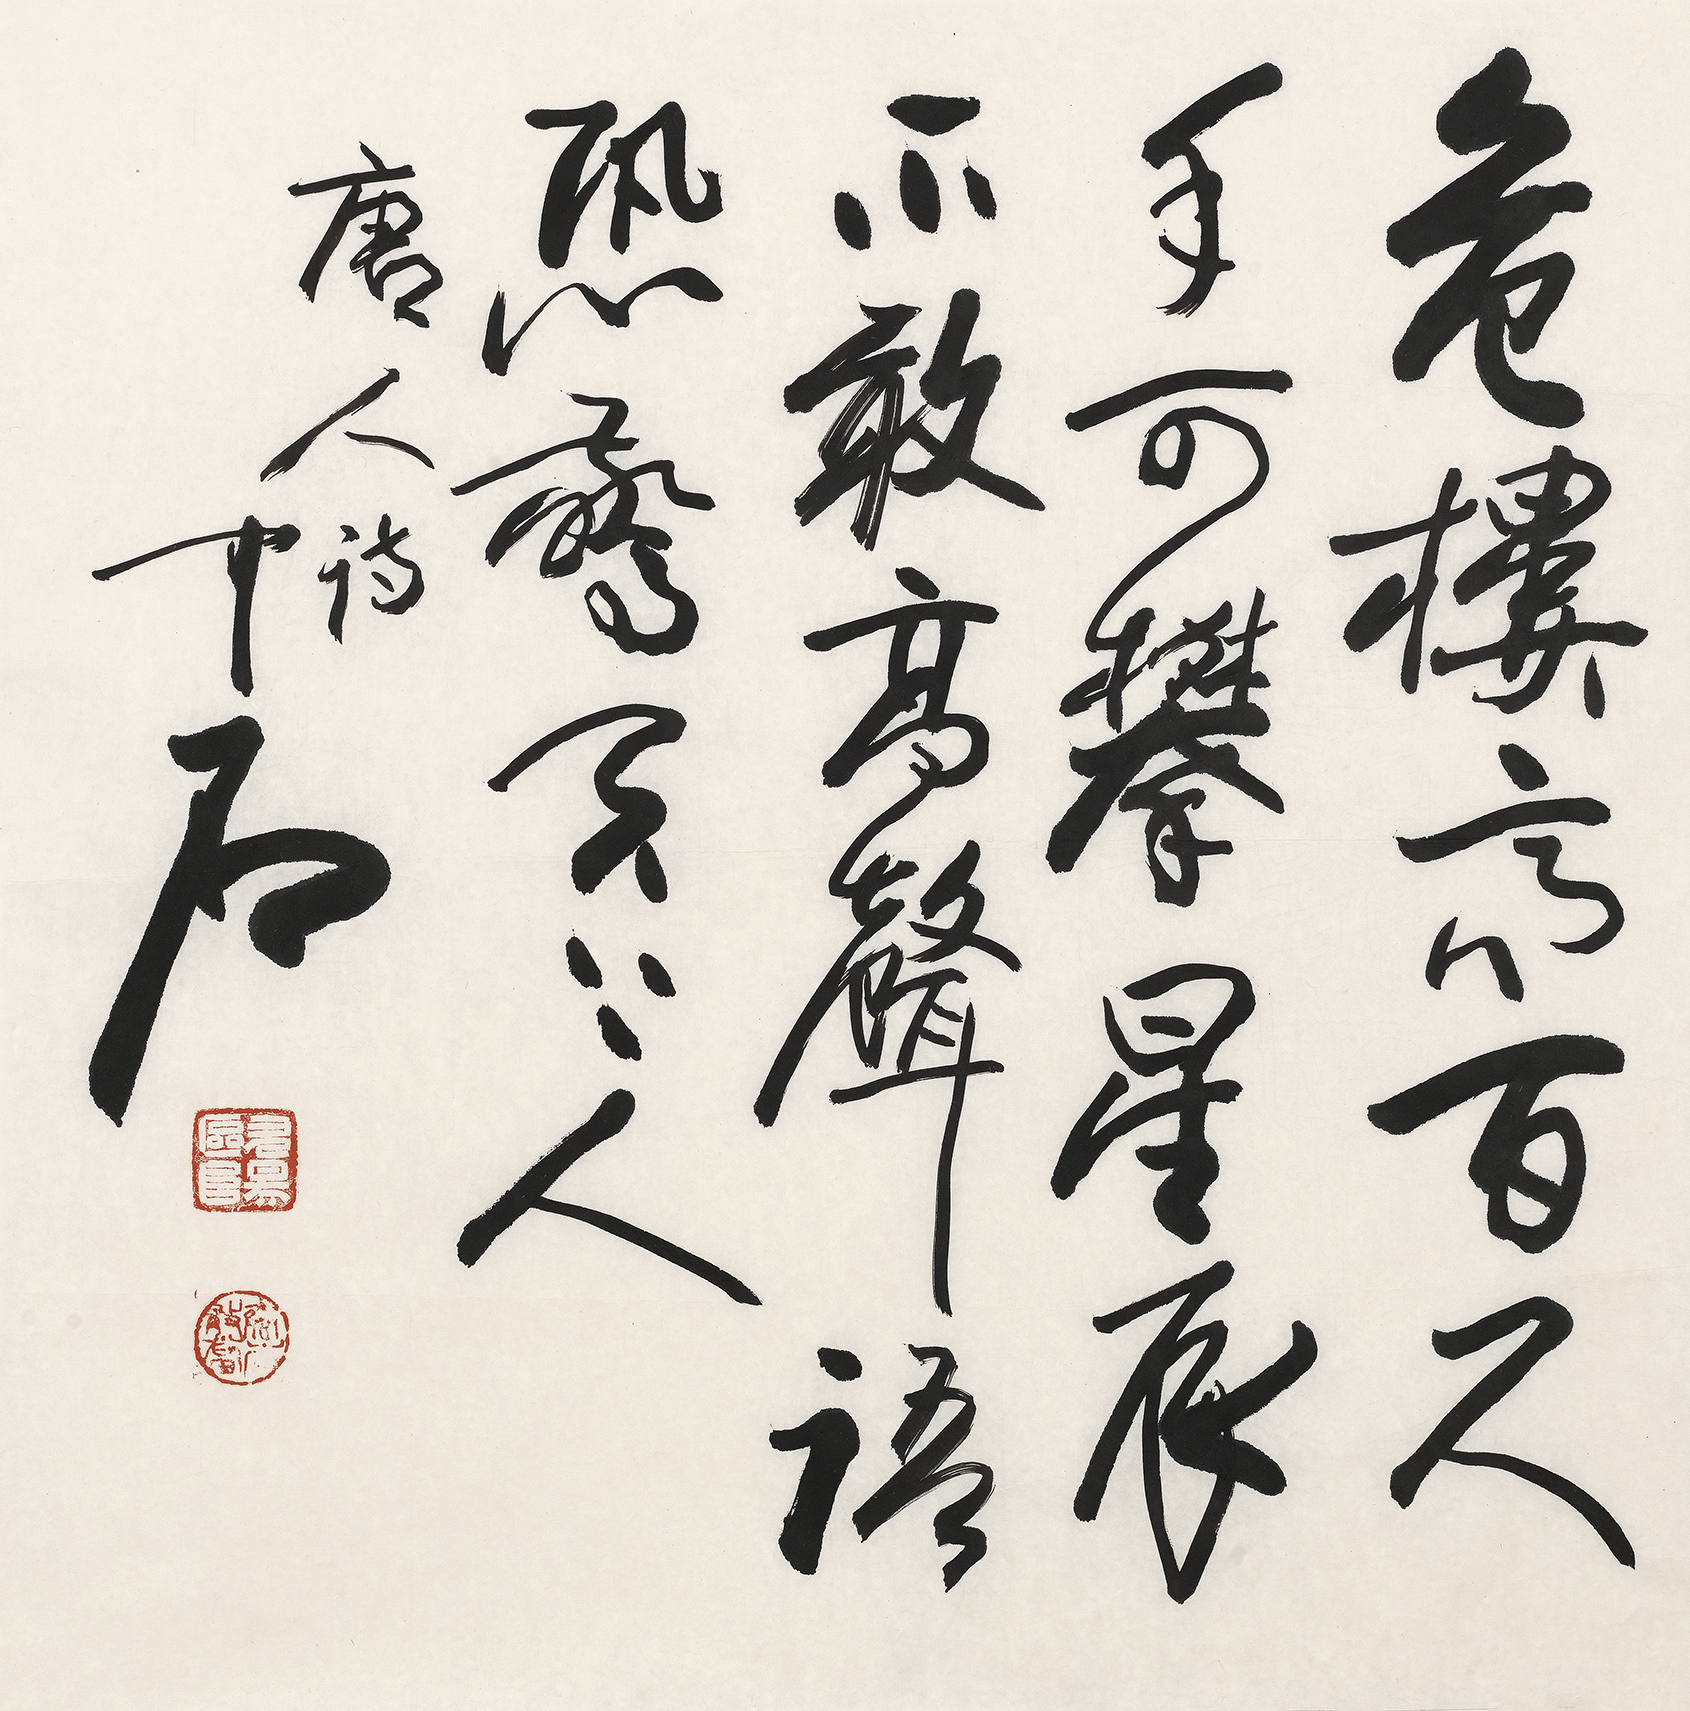 危樓高百尺
手可攀星辰
不敢高聲語
恐驚天上人
唐人詩
中石